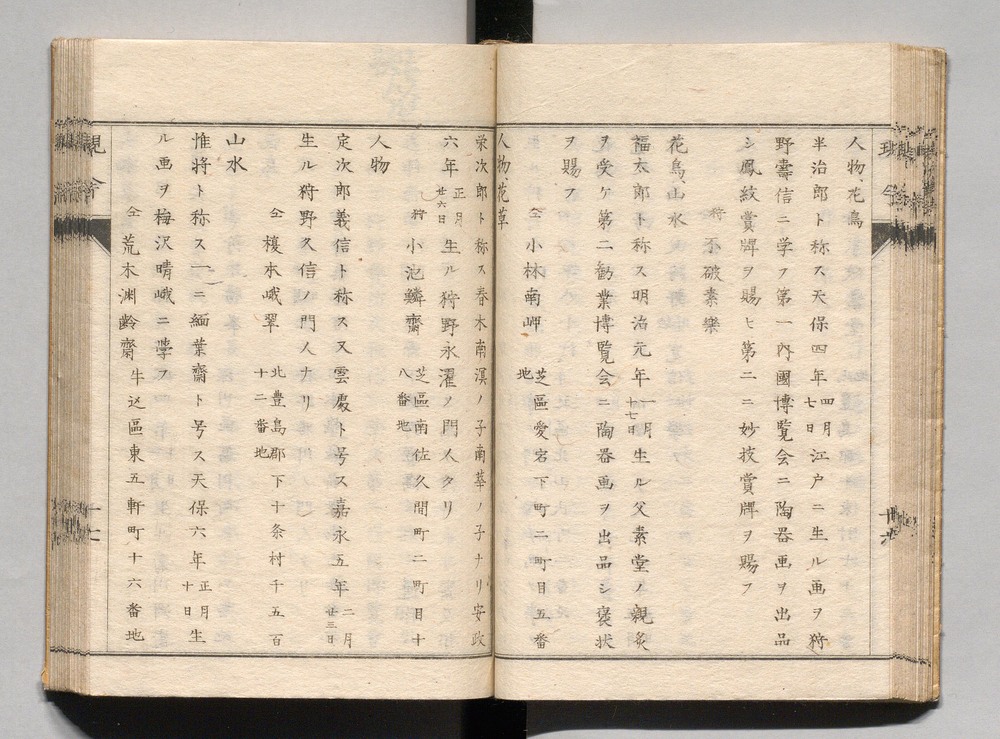 人物、花鳥
半治郎ト称ス天保四年四月七日江戸ニ生ル画ヲ狩
野壽信ニ学フ第一內國博覧会ニ陶器画ヲ出品
シ鳳紋賞牌ヲ賜ヒ第二ニ妙技賞牌ヲ賜フ
狩 不破素樂
花鳥、山水
福太郎ト称ス明治元年一月十七日生ル父素堂ノ親炙
ヲ受ケ第二勧業博覧会ニ陶器画ヲ出品シ褒状
ヲ賜フ
仝 小林南岬 芝區愛宕下町二町目五番地
人物、花草
栄次郎ト称ス春木南溟ノ子南華ノ子ナリ安政
六年正月廿六日生ル狩野永濯ノ門人タリ
狩 小沱鱗齋 芝區南佐久間町二町目十八番地
人物
定次郎義信ト称ス又雲處ト号ス嘉永五年二月廿三日
生ル狩野久信ノ門人ナリ
仝 榎本峨翠 北豊島郡下十条村千五百十二番地
山水
惟将ト称ス一ニ緬葉齋ト号ス天保六年正月十日生
ル画ヲ梅沢晴峨ニ学ス
仝 荒木渊齢齋 牛込區東五軒町十六番地
現今
十六
現今